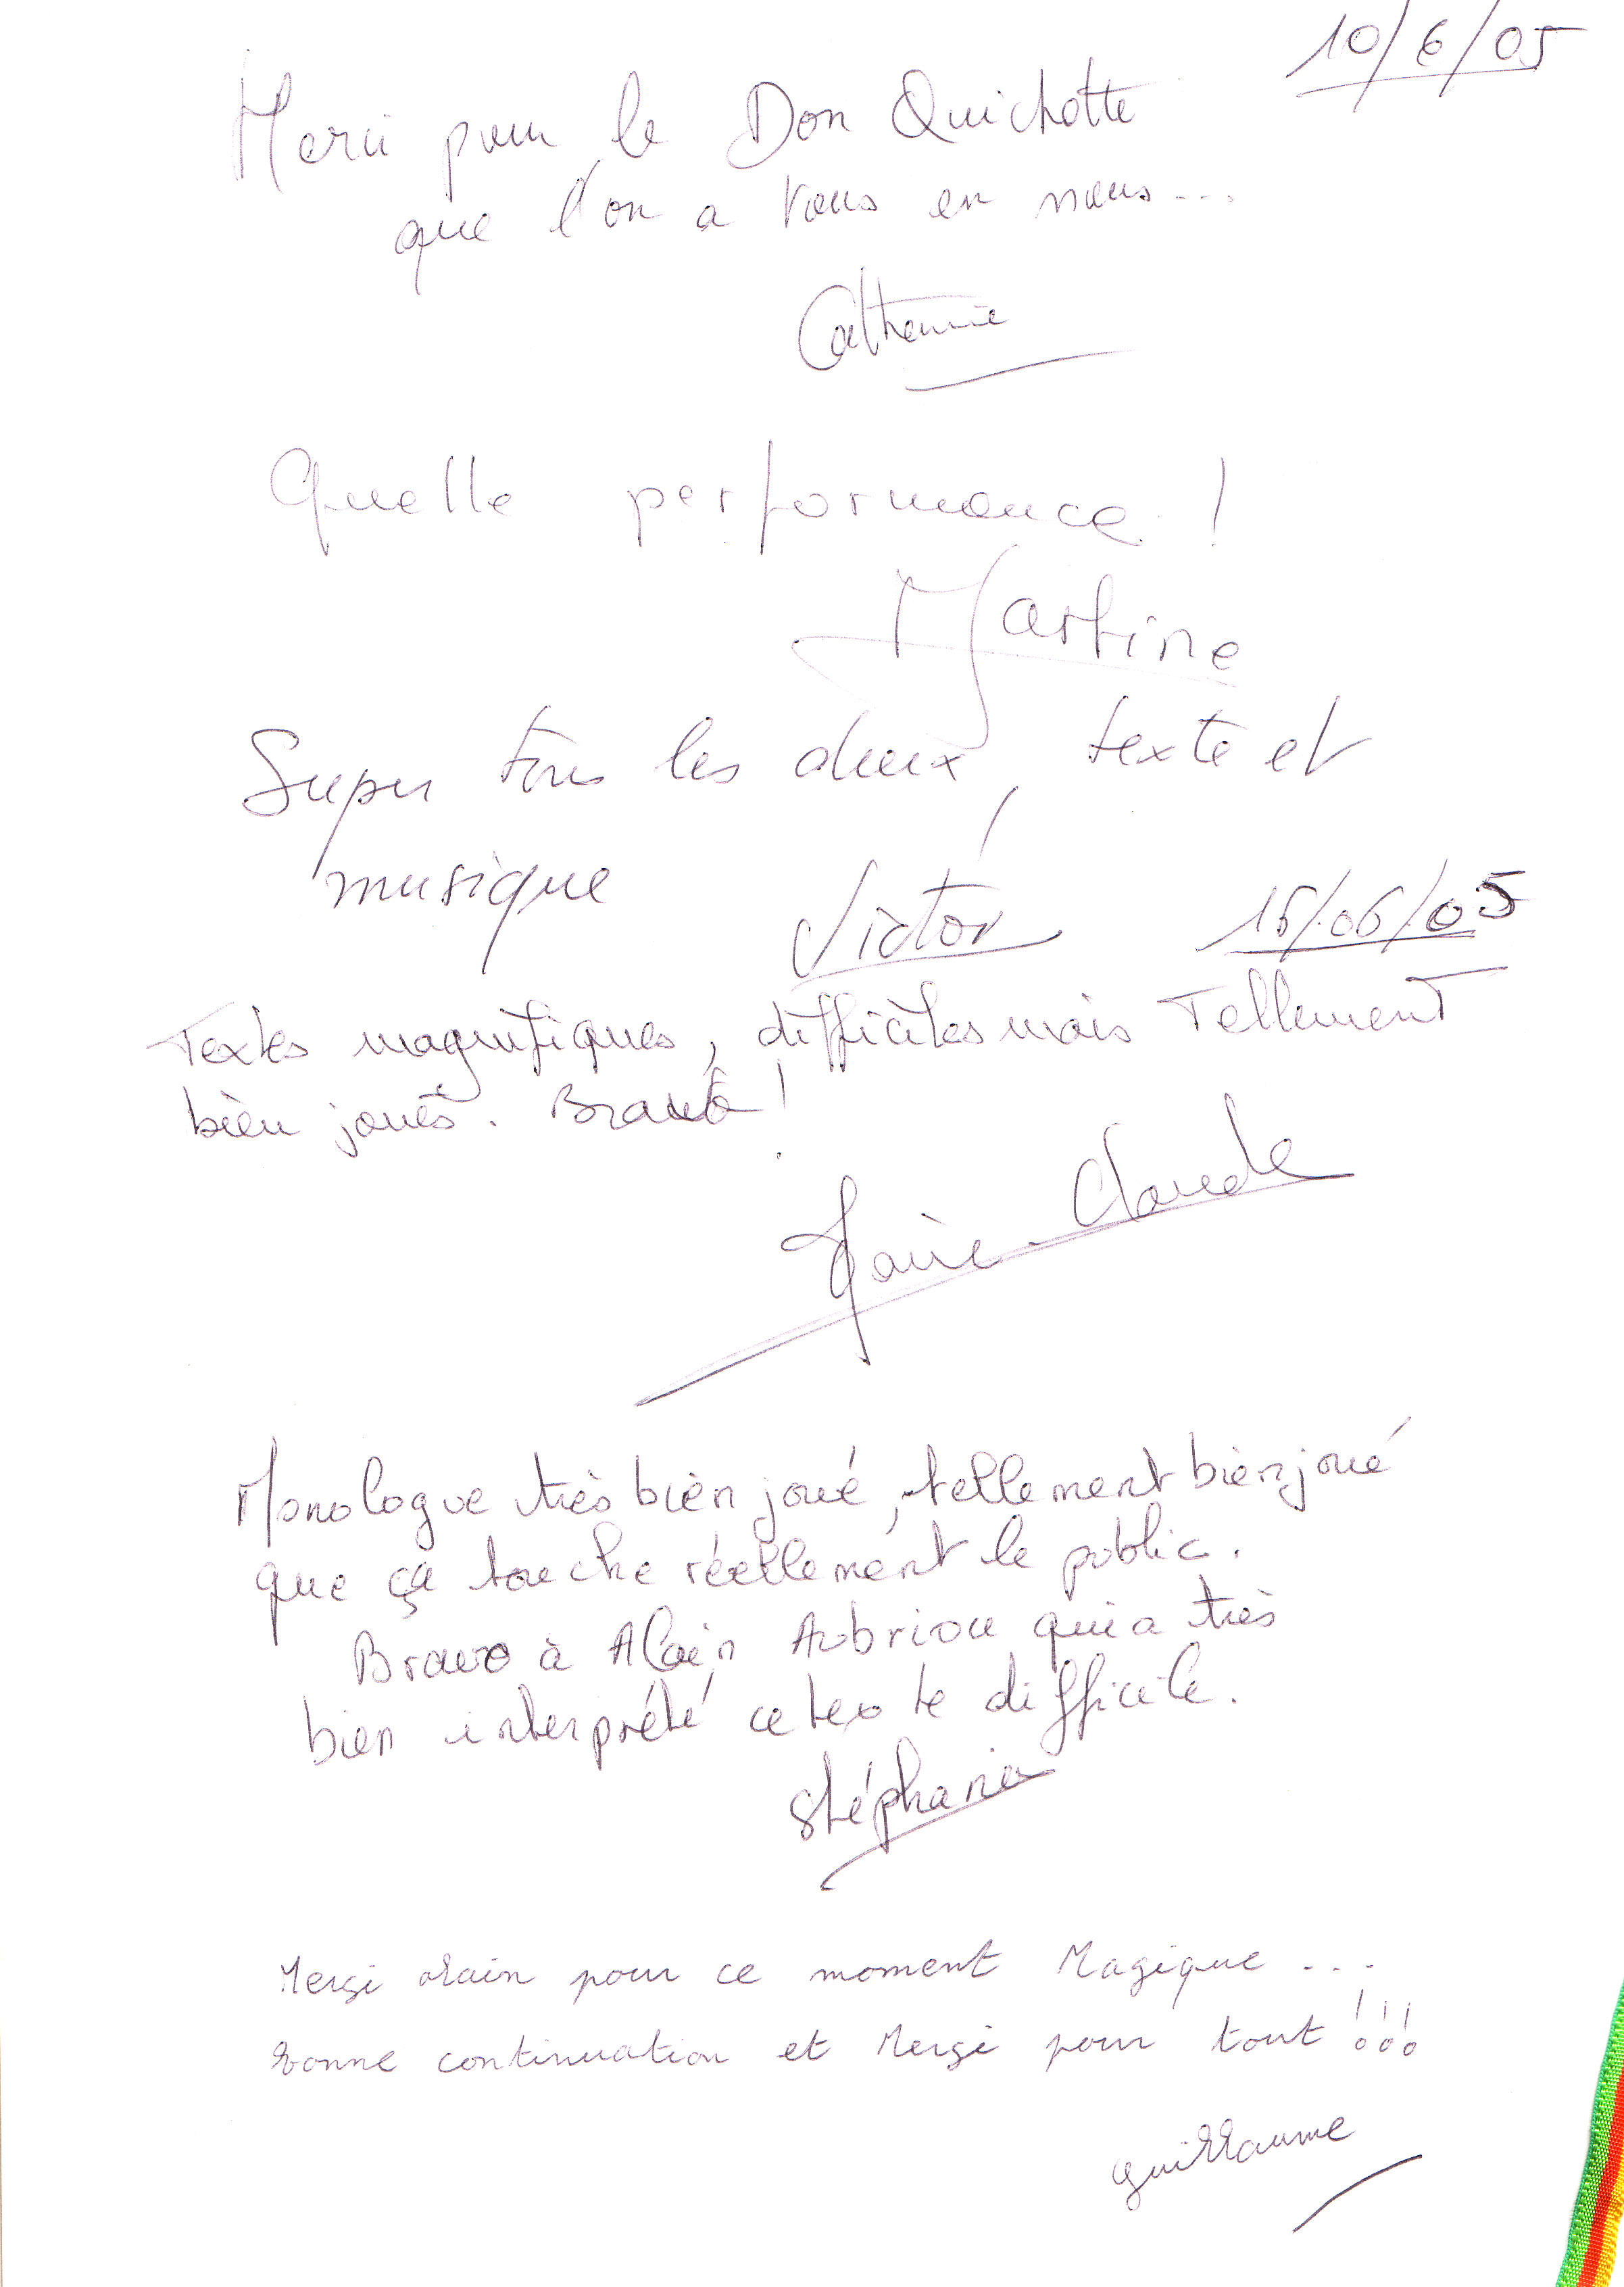 10/6/05
Merci pour le Don Quichotte
que l'on a tous en nous...
Catherine
Quelle performance !
Martine
Super tous les deux, texte et
musique
Victor
15/06/05
Textes magnifiques, difficiles mais Tellement
bien joués. Bravo !
Marie-Claude
Monologue très bien joué, tellement bien joué
que ça touche réellement le public.
Bravo à Alain Aubriou qui a très
bien interprété ce texte difficile.
Stéphanie
Merci Alain pour ce moment Magique ...
bonne continuation et Merci pour tout !!!
guillaume